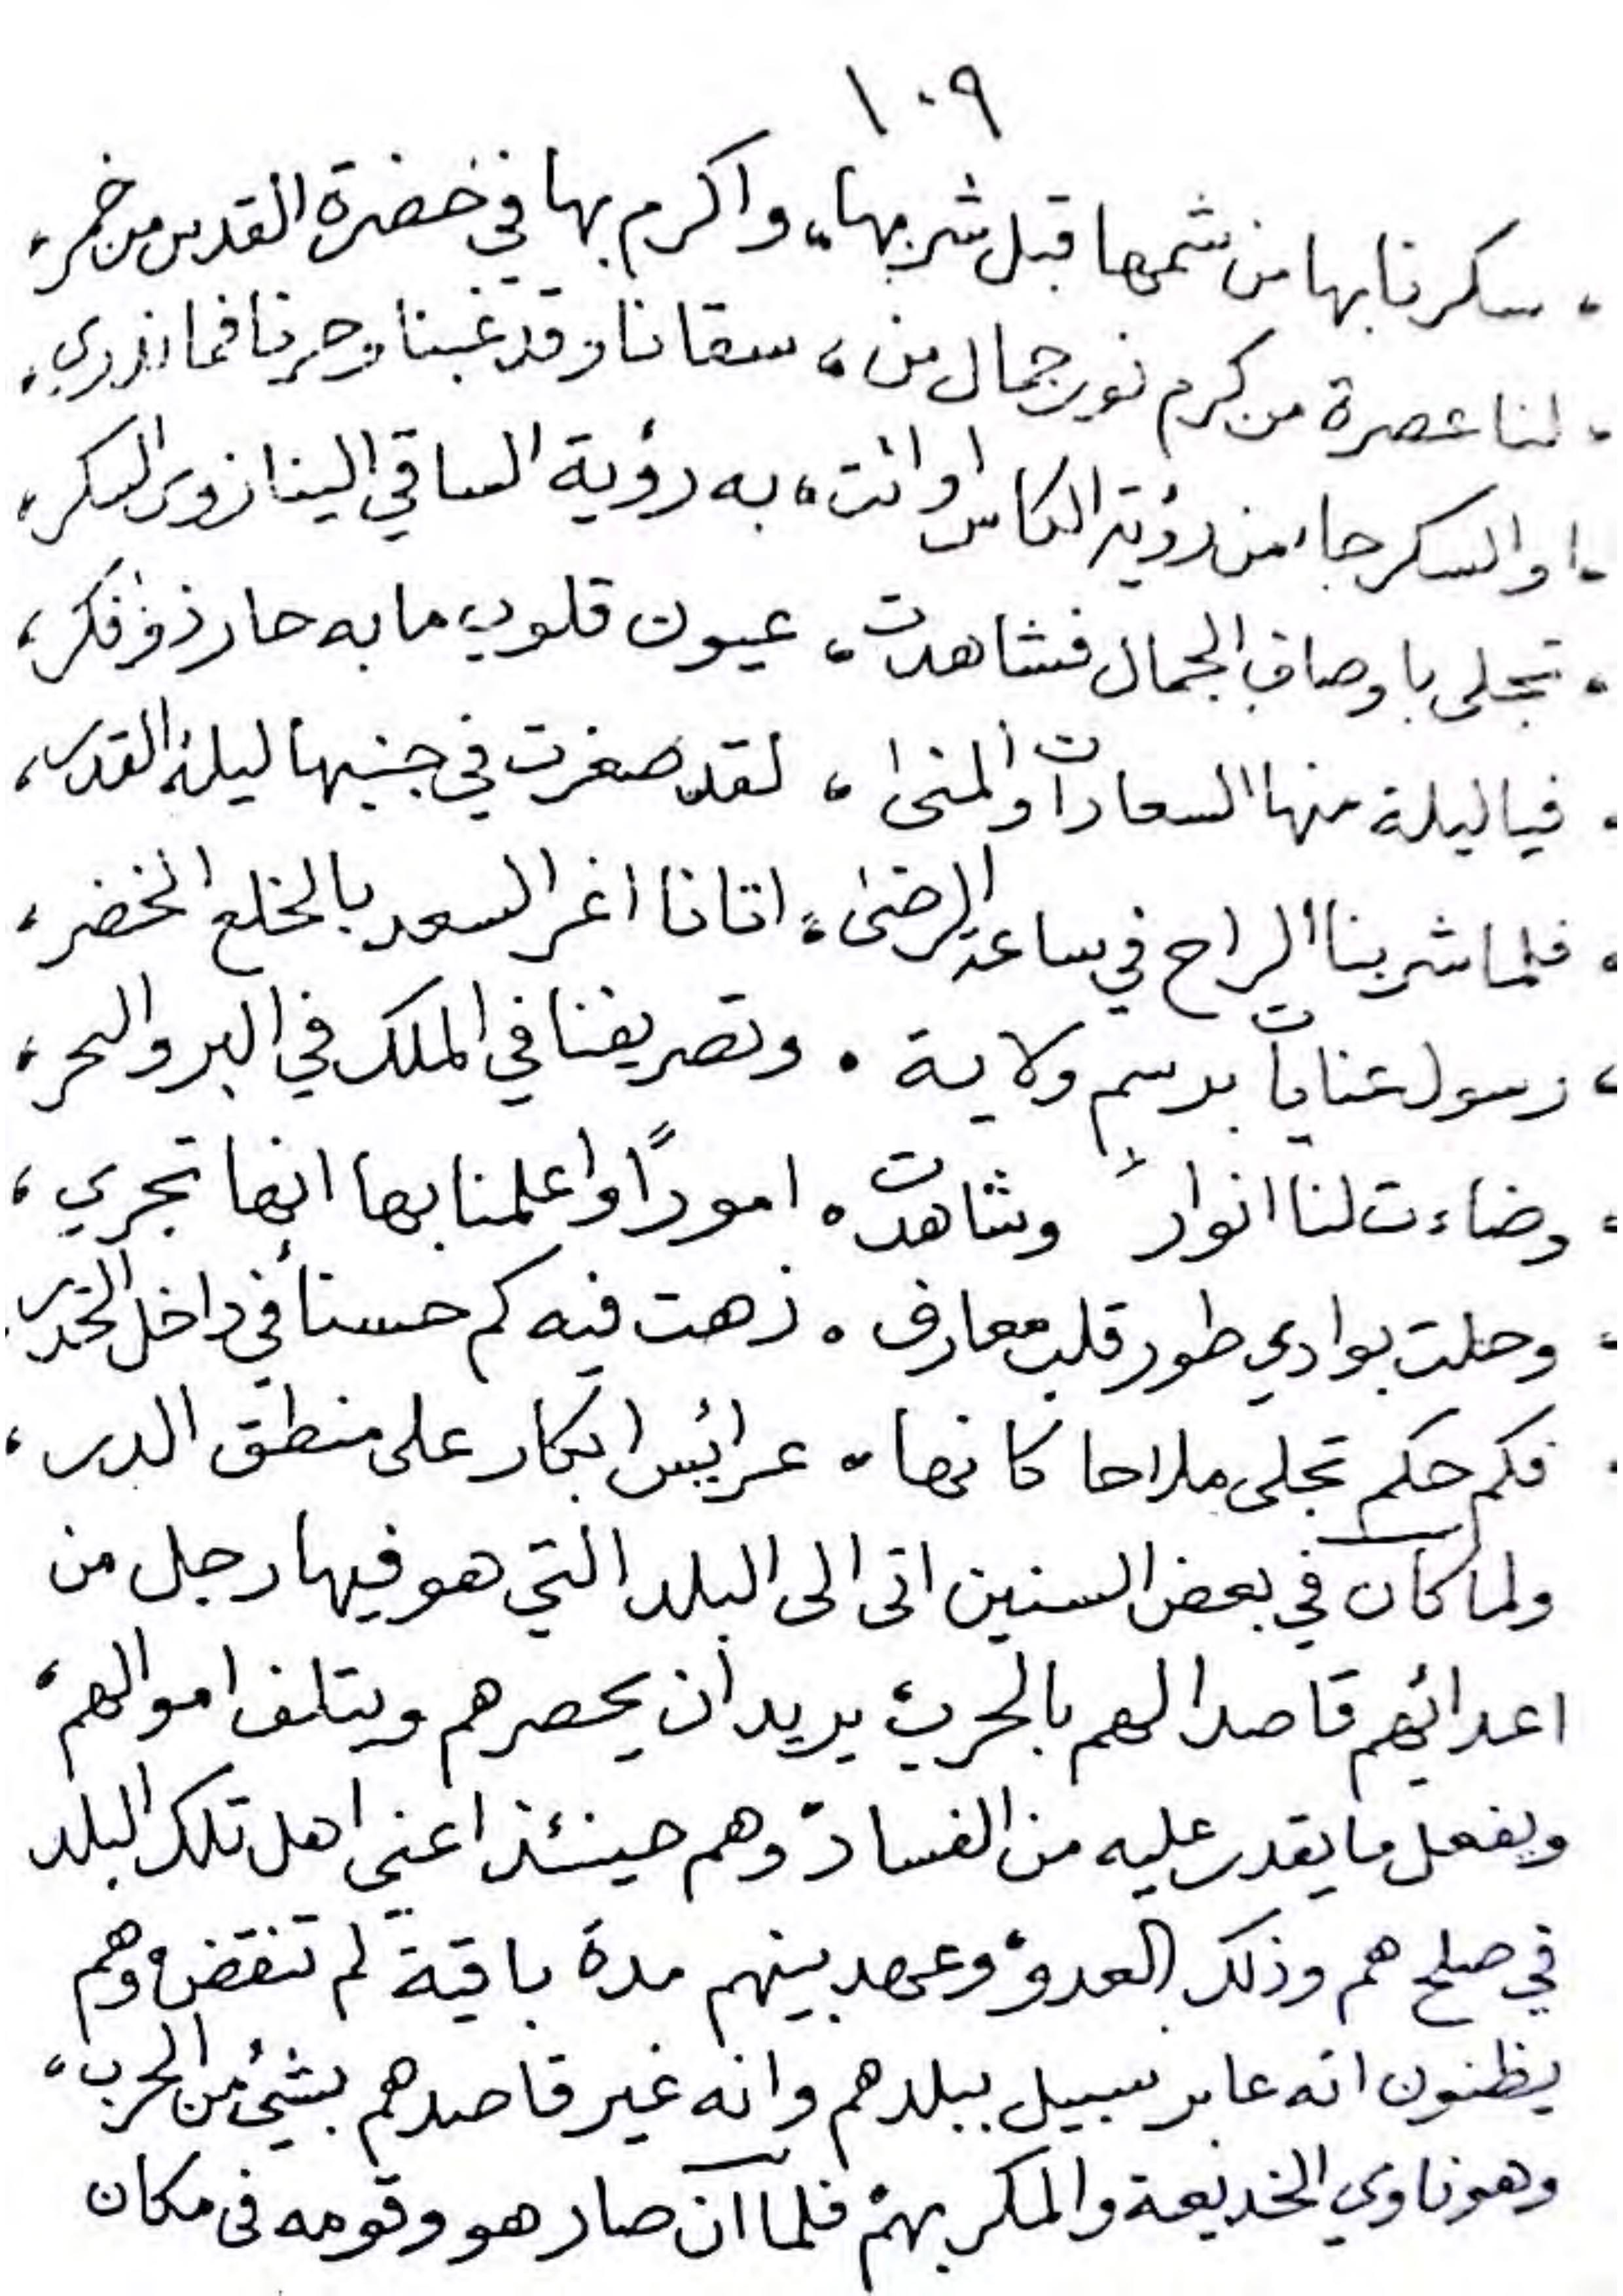 ١٠٩
، سكرنا بها من شمها قبل شربها، واكرم بها في خضرة القدس من خمر،
، لنا عصرة من كرم نور جمال من، سقانا وقد غبنا وحرنا فما ندري،
، او السكر جا من رؤية الكاس او اتت، به رؤية الساقي الينا ذوى السكر،
، تجلى باوصاف الجمال فشاهدت، عيون قلوب ما به حار ذو فكر،
، فيا ليلة منها السعادات والمنى، لقد صغرت في جنبها ليلة القدر،
، فلما شربنا الراح في ساعة الرضى، اتانا اغر السعد بالخلع الخضر،
، رسول عنايات برسم ولاية ، وتصريفنا في الملك في البر والبحر،
، وضاءت لنا انوار وشاهدت، امورًا واعلمنا بها انها تجري،
، وحلت بوادي طور قلب معارف ، زهت فيه كم حسنا في داخل الخدر
، فكم حكم تجلى ملاحا كانها ، عرائس ابكار على منطق الدر،
ولما كان في بعض السنين اتى الى البلد التي هو فيها رجل من
اعدائهم قاصدا لهم بالحرب، يريد ان يحصرهم ويتلف اموالهم،
ويفعل ما يقدر عليه من الفساد، وهم حينئذ اعني اهل تلك البلد
في صلح هم وذلك العدو، وعهد بينهم مدة باقية لم تنقض، وهم
يظنون انه عابر سبيل ببلدهم وانه غير قاصدهم بشيء من الحرب،
وهو ناوي الخديعة والمكر بهم، فلما ان صار هو وقومه فى مكان